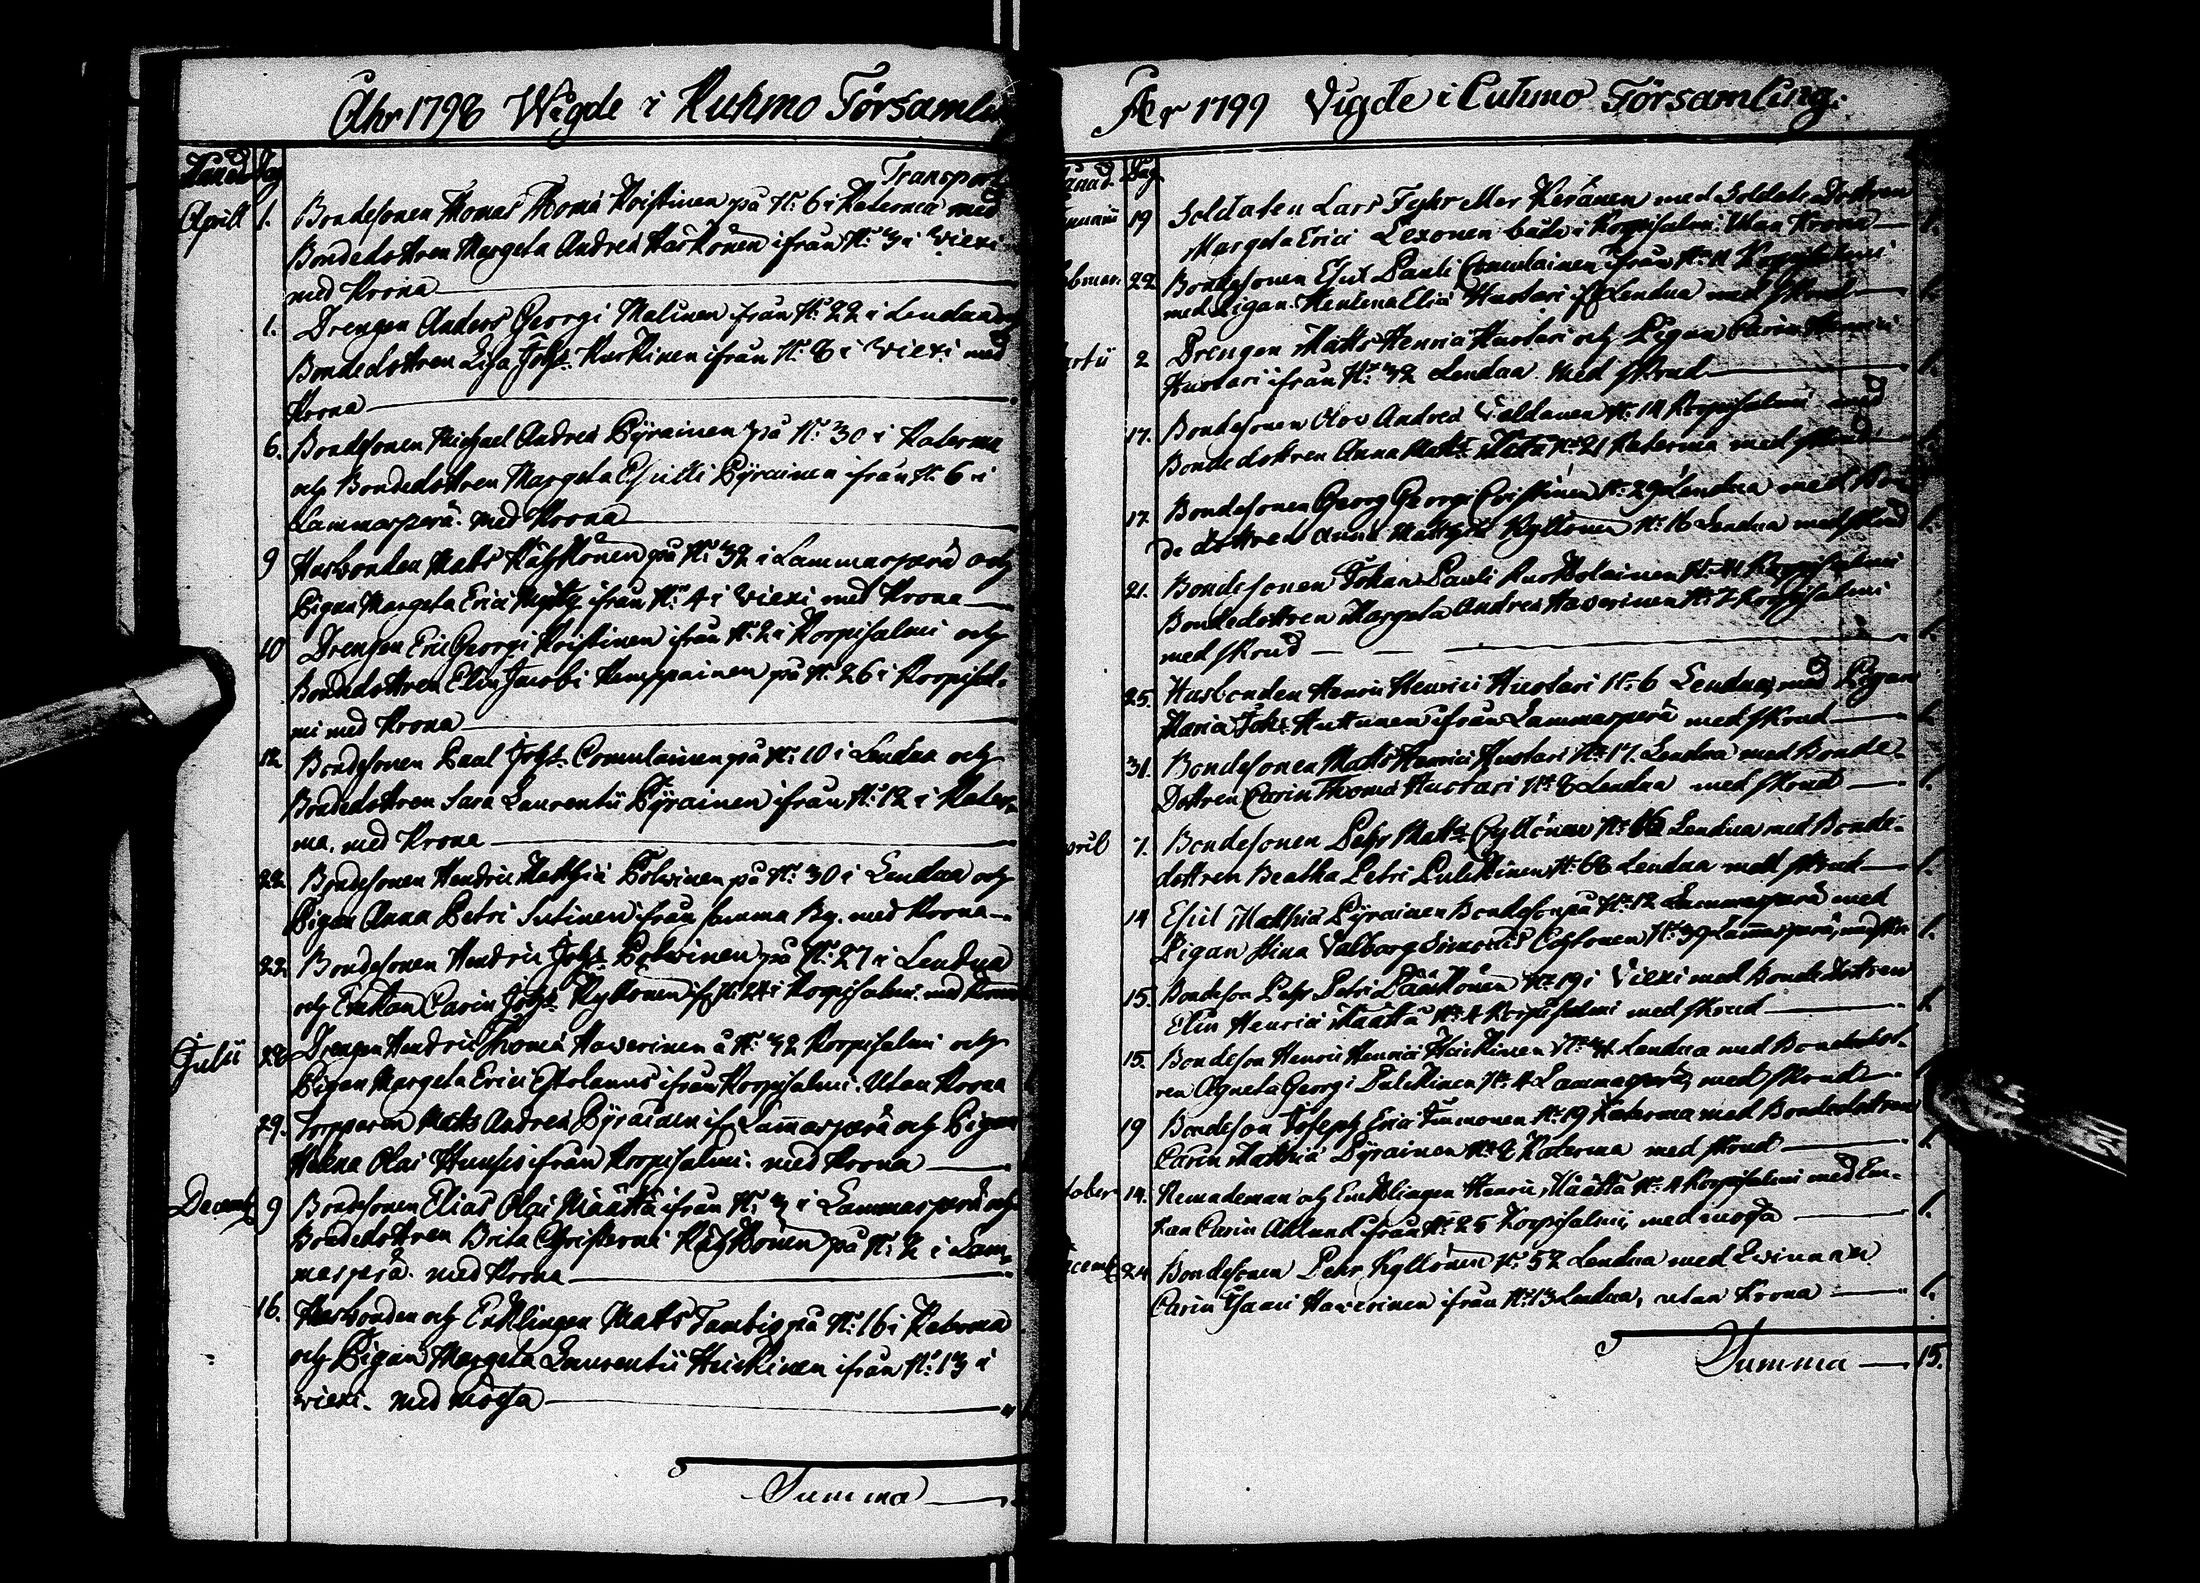 Åhr 1798 Wigde i Kuhmo Församlin
Månad Dag
Transport
Aprill 1. Bondesonen Thomas Thomæ Kristinen på N: 6 i Katerma med
Bondedottren Margeta Andreæ Härkönen ifrån N: 3 i Viexi
med Krona
1. Drengen Anders Georgi Malinen från N: 22 i Lendua
Bondedottren Lisa Johs: Kurkinen ifrån N: 8 i Viexi med
Krona
6. Bondesonen Michael Andreæ Pyrainen på N: 30 i Katerma
och Bondedottren Margeta Eskilli Pyrainen ifrån N: 6 i
Lammasperä. med Krona
9 Husbonden Matts Käshkönen på N: 32 i Lammasperä och
Pigan Margeta Erici ifrån N: 4 i Viexi med Krona
10 Drengen Eric Georgi Kristinen ifrån N: 2 i Korpisalmi och
Bondedottren Elin Jacobi Kemppainen på N: 26 i Korpisal-
mi med Krona
12 Bondesonen Paul Johs: Comulainen på N: 10 i Lendua och
Bondedottren Sara Laurentii Pyrainen ifrån N: 12 i Kater-
ma, med Krona
22. Bondesonen Hendric Matthiæ Polvinen på N: 30 i Lendua och
Pigan Anna Petri Sutinen ifrån samma By. med Krona
22. Bondesonen Hendric Johs: Polvinen på N: 27 i Lendua
och Enkan Carin Johs: Kyllönen if N: 24 i Korpisalmi. med Krona
Julii 28 Drengen Hendric Thomæ Haverinen å N: 32 Korpisalmi och
Pigan Margeta Erici ifrån Korpisalmi. Utan Krona
29. Torparen Matts Andreæ Pyrainen if Lammasperä och Pigan
Helena Olai ifrån Korpisalmi. med Krona
Decemb 9 Bondesonen Elias Olai Määttä ifrån N: 3 i Lammasperä och
Bondedottren Brita Christerni Käshkönen på N: 2 i Lam-
masperä. med Krona
16. Husbonden och Enklingen Matts Tambio på N: 16 i Katerma
och Pigan Margeta Laurentii Heickinen ifrån N: 13 i
viexi. med mössa
Summa
År 1799 Vigde i Cuhmo Församling.
Månad. Dag
19 Soldaten Lars Fyhr Keränen med Soldatedottren
Margeta Erici Lexonen både i Korpisalmi. Utan Krona 1.
22 Bondesonen Eskil Pauli Comulainen ifrån N: 11 Korpisalmi
med Pigan Elia Huotari if Lendua med skrud 1.
2 Drengen Matts Henrici Huotari och Pigan Carin Henrici
Huotari ifrån N: 32 Lendua med skrud 1.
17. Bondesonen Olov Andreæ Valdanen N: 14 Korpisalmi med
Bondedottren Anna Matts: N: 21 Katerma med skrud 1.
17. Bondesonen Georg Georgi Cristinen N: 29 Lendua med Bon-
de dottren Anna Matthiæ Kyllönen N: 16 Lendua med skrud 1.
21. Bondesonen Johan Pauli N: 41 Korpisalmi
Bondedottren Margeta Andreæ Haverinen N: 7 Korpisalmi
med skrud 1.
25. Husbonden Henric Henrici Huotari N: 6 Lendua, med Pigan
Maria Johs: Huttunen ifrån Lammasperä med skrud 1.
31. Bondesonen Matts Henrici Huotari N: 17. Lendua med Bonde-
Dottren Carin Thomæ Huotari N: 8 Lendua med skrud 1.
April 7. Bondesonen Pehr Matts: Cyllönen N: 16 Lendua med Bonde-
dottren Beatha Petri Pulckinen N: 68 Lendua med skrud 1.
14 Eskil Matthiæ Pyrainen Bondeson på N: 12 Lammasperä med
Pigan Stina Valborg Simonis N: 39 Lammasperä, med 1.
15. Bondeson Pehr Petri Pääskönen N: 19 i Viexi med Bondedottren
Elin Henrici Määttä N: 4 Korpisalmi med skrud 1.
15. Bondeson Henric Henrici Heickinen Lendua med Bondedot-
ren Agneta Georgi Pulckinen N: 4 Lammasperä, med skrud 1
19 Bondeson Joseph Erici Timonen N: 19 Katerma med Bondedottren
Carin Matthiæ Pyrainen N: 2 Katerma med skrud 1.
14. Nemndeman och Encklingen Henric Määttä N: 4 Korpisalmi med En-
kan Carin Adlund ifrån N: 25 Korpisalmi, med mössa 1.
24 Bondesonen Pehr Kyllönen N: 52 Lendua med Qvinnan
Carin Haverinen ifrån N: 13 Lendua, utan Krona 1.
Summa 15.